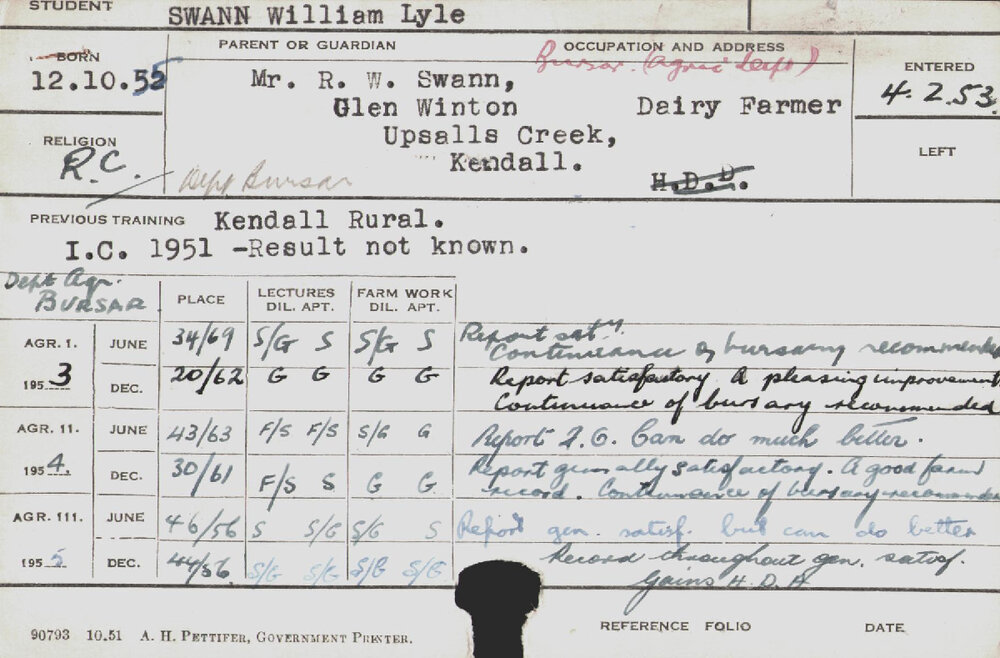 STUDENT SWANN William Lyle
BORN PARENT OR GUARDIAN OCCUPATION AND ADDRESS
Bursar. (Agric Dept)
ENTERED
12.10.35 Mr. R. W. Swann,
4. 2. 53.
Glen Winton Dairy Farmer
Upsalls Creek,
RELIGION LEFT
R.C. Kendall.
Dept Bursar H.D.D.
PREVIOUS TRAINING Kendall Rural.
I.C. 1951 -Result not known.
Dept Agr.
BURSAR PLACE LECTURES FARM WORK
DIL. APT. DIL. APT.
AGR. I. JUNE 34/69 S/G S S/G S Report saty.
Continuance of bursary recommended
1953 DEC. 20/62 G G G G Report satisfactory. A pleasing improvement
Continuance of bursary recommended
AGR. II. JUNE 43/63 F/S F/S S/G G Report F.G. Can do much better.
1954. DEC. 30/61 F/S S G G Report generally satisfactory. A good farm
record. Continuance of bursary recommended
AGR. III. JUNE 46/56 S S/G S/G S Report gen. satisf. but can do better
1955 DEC. 44/56 S/G S/G S/G S/G Record throughout gen. satisf.
Gains H.D.A
90793 10.51 A. H. PETTIFER, GOVERNMENT PRINTER.
REFERENCE FOLIO DATE